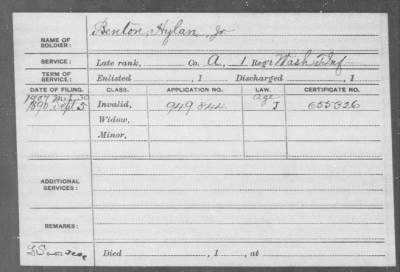 NAME OF SOLDIER: Benton, Hylan, Jr
SERVICE: Late rank, Co. A, 1 Reg't Wash T Inf
TERM OF SERVICE: Enlisted , 1 Discharged , 1
DATE OF FILING. CLASS. APPLICATION NO. LAW. CERTIFICATE NO.
1907 Mch 30 Age
1890 Sept 5 Invalid, 949844 J 655326
Widow,
Minor,
ADDITIONAL SERVICES:
REMARKS:
Died , 1 , at